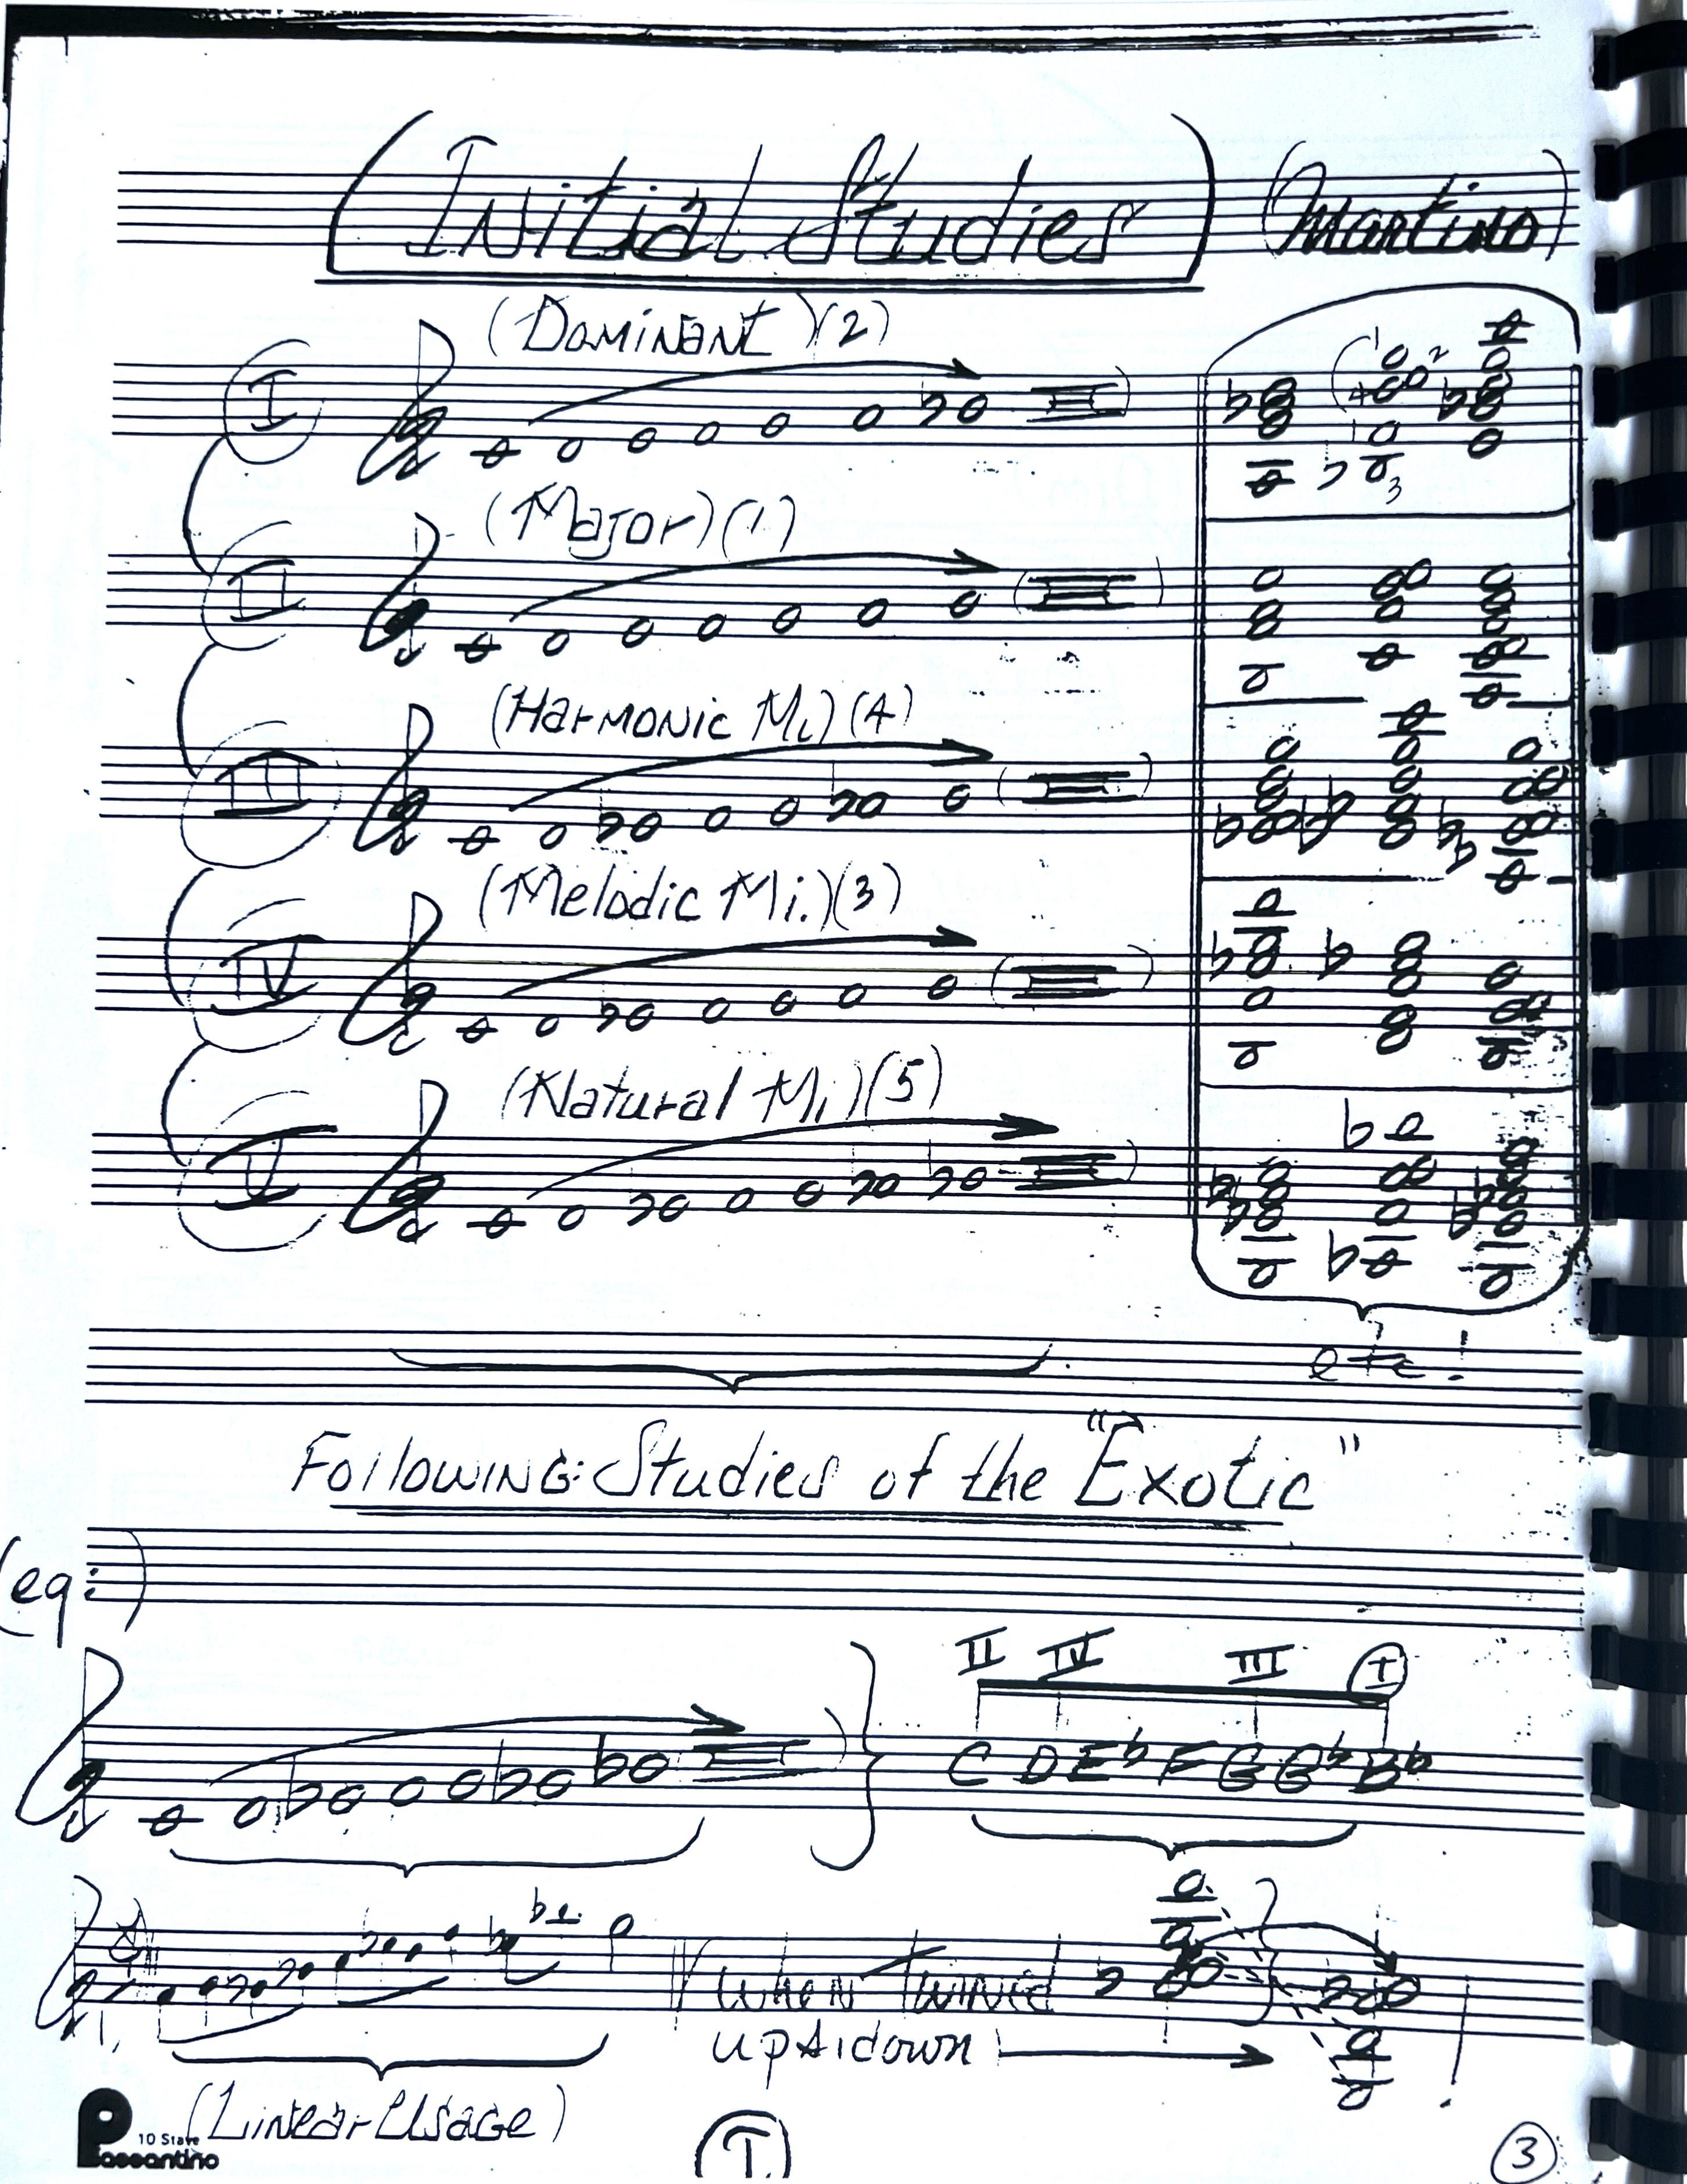 (Initial Studies) (Martino)
I (Dominant)(2)
1 2 4 1 3
II (Major)(1)
III (Harmonic Mi)(4)
IV (Melodic Mi.)(3)
V (Natural Mi)(5)
etc!
Following: Studies of the "Exotic"
(eg:)
II IV III I
C D E♭ F G G♭ B♭
When Turned
upsidown
(Linear Usage)
10 Stave
Passantino
I.
3